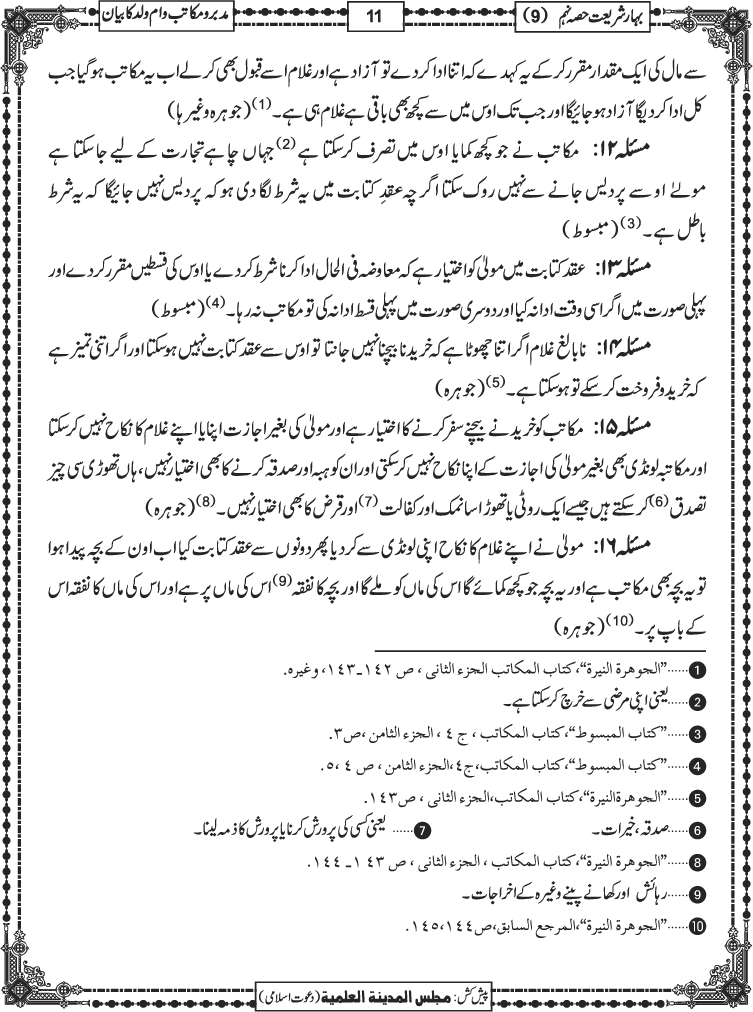 بہار شریعت حصہ نہم (9)
11
مدبر و مکاتب و ام ولد کا بیان
سے مال کی ایک مقدار مقرر کر کے یہ کہدے کہ اتنا ادا کر دے تو آزاد ہے اور غلام اسے قبول بھی کر لے اب یہ مکاتب ہو گیا جب
کل ادا کر دیگا آزاد ہو جائیگا اور جب تک اوس میں سے کچھ بھی باقی ہے غلام ہی ہے۔(1) (جوہرہ وغیرہا)
مسئلہ ۱۲: مکاتب نے جو کچھ کمایا اوس میں تصرف کر سکتا ہے(2) جہاں چاہے تجارت کے لیے جا سکتا ہے
مولےٰ اوسے پردیس جانے سے نہیں روک سکتا اگرچہ عقدِ کتابت میں یہ شرط لگا دی ہو کہ پردیس نہیں جائیگا کہ یہ شرط
باطل ہے۔(3) (مبسوط)
مسئلہ ۱۳: عقد کتابت میں مولیٰ کو اختیار ہے کہ معاوضہ فی الحال ادا کرنا شرط کر دے یا اوس کی قسطیں مقرر کر دے اور
پہلی صورت میں اگر اسی وقت ادا نہ کیا اور دوسری صورت میں پہلی قسط ادا نہ کی تو مکاتب نہ رہا۔(4) (مبسوط)
مسئلہ ۱۴: نابالغ غلام اگر اتنا چھوٹا ہے کہ خریدنا بیچنا نہیں جانتا تو اوس سے عقد کتابت نہیں ہو سکتا اور اگر اتنی تمیز ہے
کہ خرید و فروخت کر سکے تو ہو سکتا ہے۔(5) (جوہرہ)
مسئلہ ۱۵: مکاتب کو خریدنے بیچنے سفر کرنے کا اختیار ہے اور مولیٰ کی بغیر اجازت اپنا یا اپنے غلام کا نکاح نہیں کر سکتا
اور مکاتبہ لونڈی بھی بغیر مولیٰ کی اجازت کے اپنا نکاح نہیں کر سکتی اور ان کو ہبہ اور صدقہ کرنے کا بھی اختیار نہیں، ہاں تھوڑی سی چیز
تصدق(6) کر سکتے ہیں جیسے ایک روٹی یا تھوڑا سا نمک اور کفالت(7) اور قرض کا بھی اختیار نہیں۔(8) (جوہرہ)
مسئلہ ۱۶: مولیٰ نے اپنے غلام کا نکاح اپنی لونڈی سے کر دیا پھر دونوں سے عقد کتابت کیا اب اون کے بچہ پیدا ہوا
تو یہ بچہ بھی مکاتب ہے اور یہ بچہ جو کچھ کمائے گا اس کی ماں کو ملے گا اور بچہ کا نفقہ(9) اس کی ماں پر ہے اور اس کی ماں کا نفقہ اس
کے باپ پر۔(10) (جوہرہ)
1 ......”الجوهرة النيرة“،كتاب المكاتب الجزء الثانى ، ص ١٤٢ـ١٤٣، وغيره.
2 ......یعنی اپنی مرضی سے خرچ کر سکتا ہے۔
3 ......”كتاب المبسوط“،كتاب المكاتب ، ج ٤ ، الجزء الثامن ،ص٣.
4 ......”كتاب المبسوط“،كتاب المكاتب،ج٤،الجزء الثامن ، ص ٤ ،٥.
5 ......”الجوهرةالنيرة“،كتاب المكاتب،الجزء الثانى ، ص١٤٣.
6 ......صدقہ، خیرات۔ 7 ......یعنی کسی کی پرورش کرنا یا پرورش کا ذمہ لینا۔
8 ......”الجوهرة النيرة“،كتاب المكاتب ، الجزء الثانى ، ص ١٤٣ ـ ١٤٤.
9 ......رہائش اور کھانے پینے وغیرہ کے اخراجات۔
10 ......”الجوهرة النيرة“،المرجع السابق،ص١٤٤،١٤٥.
پیش کش: مجلس المدینة العلمیة (دعوت اسلامی)